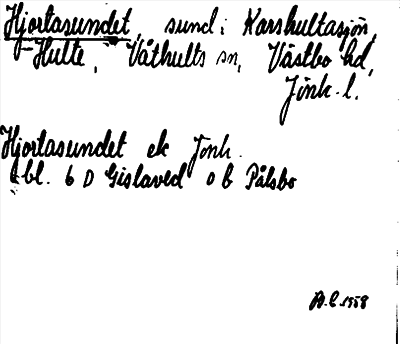 Hjortasundet, sund i Karshultasjön,
Hulte, Våthults sn, Västbo hd,
Jönk. l.
Hjortasundet ek Jönk.
kbl. 6 D Gislaved 0 b Pålsbo
1958